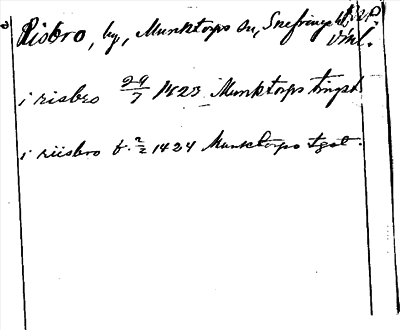 Risbro, by, Munktorps sn, Snefringe hd,
Vml.
i risbro 29/7 1423 Munktorps tingst
i riisbro b. 2/2 1424 Munktorps tgst.